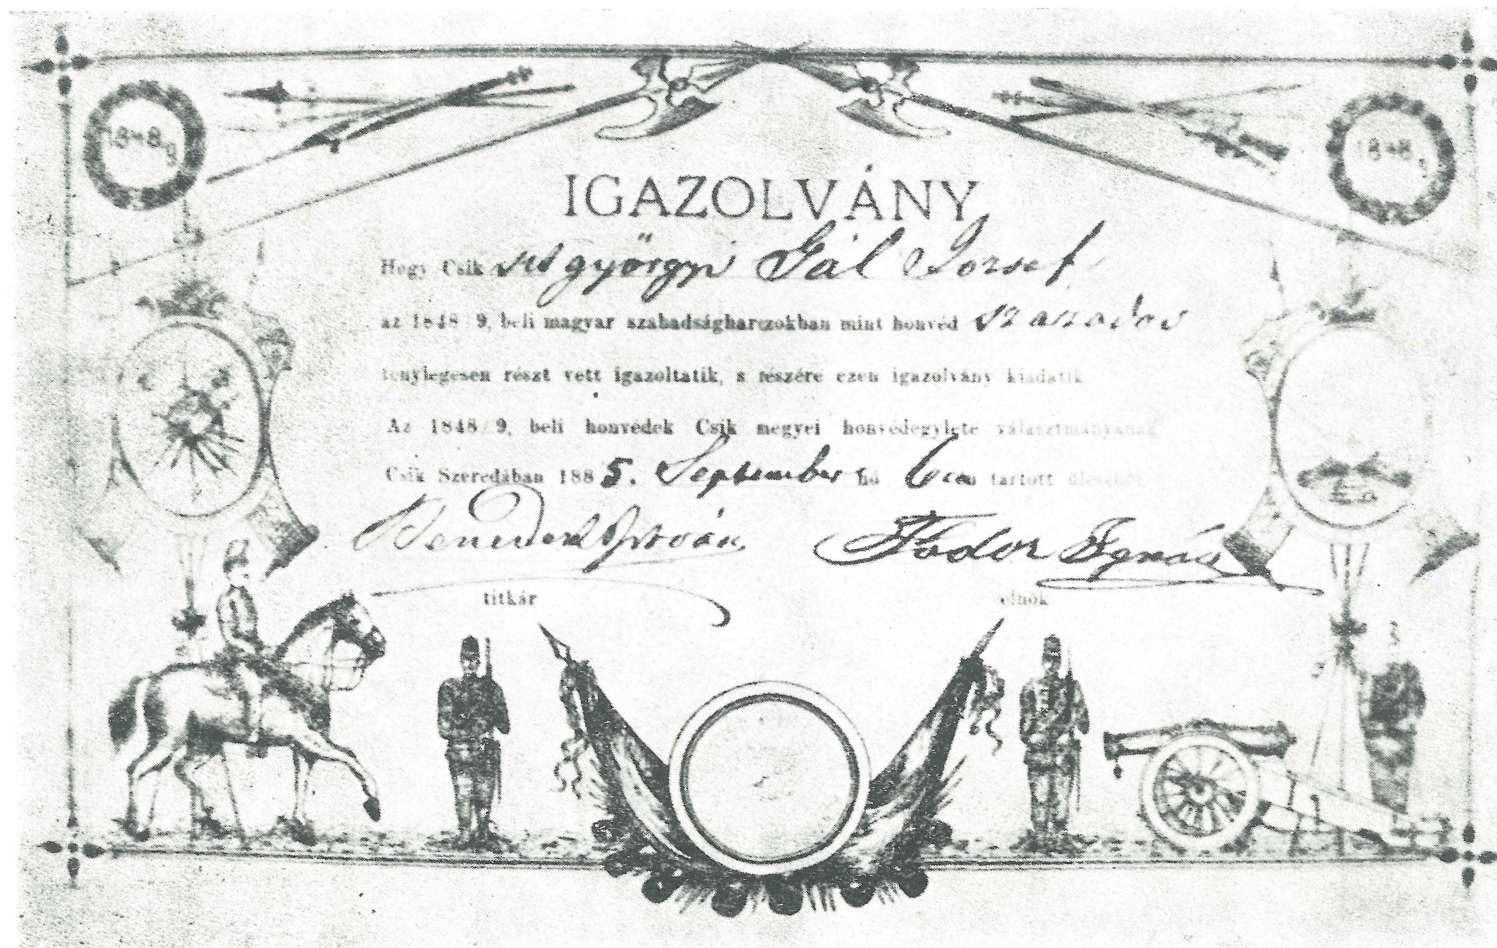 1848 9
1848 9
IGAZOLVÁNY
Hogy Csik sztgyörgyi Gál József
az 1848/9, beli magyar szabadságharczokban mint honvéd százados
ténylegesen részt vett igazoltatik, s részére ezen igazolvány kiadatik
Az 1848/9, beli honvédek Csik megyei honvédegylete választmányának
Csik Szeredában 1885. September hó 6án tartott üléséből.
Benedek István Fodor Ignác
titkár elnök